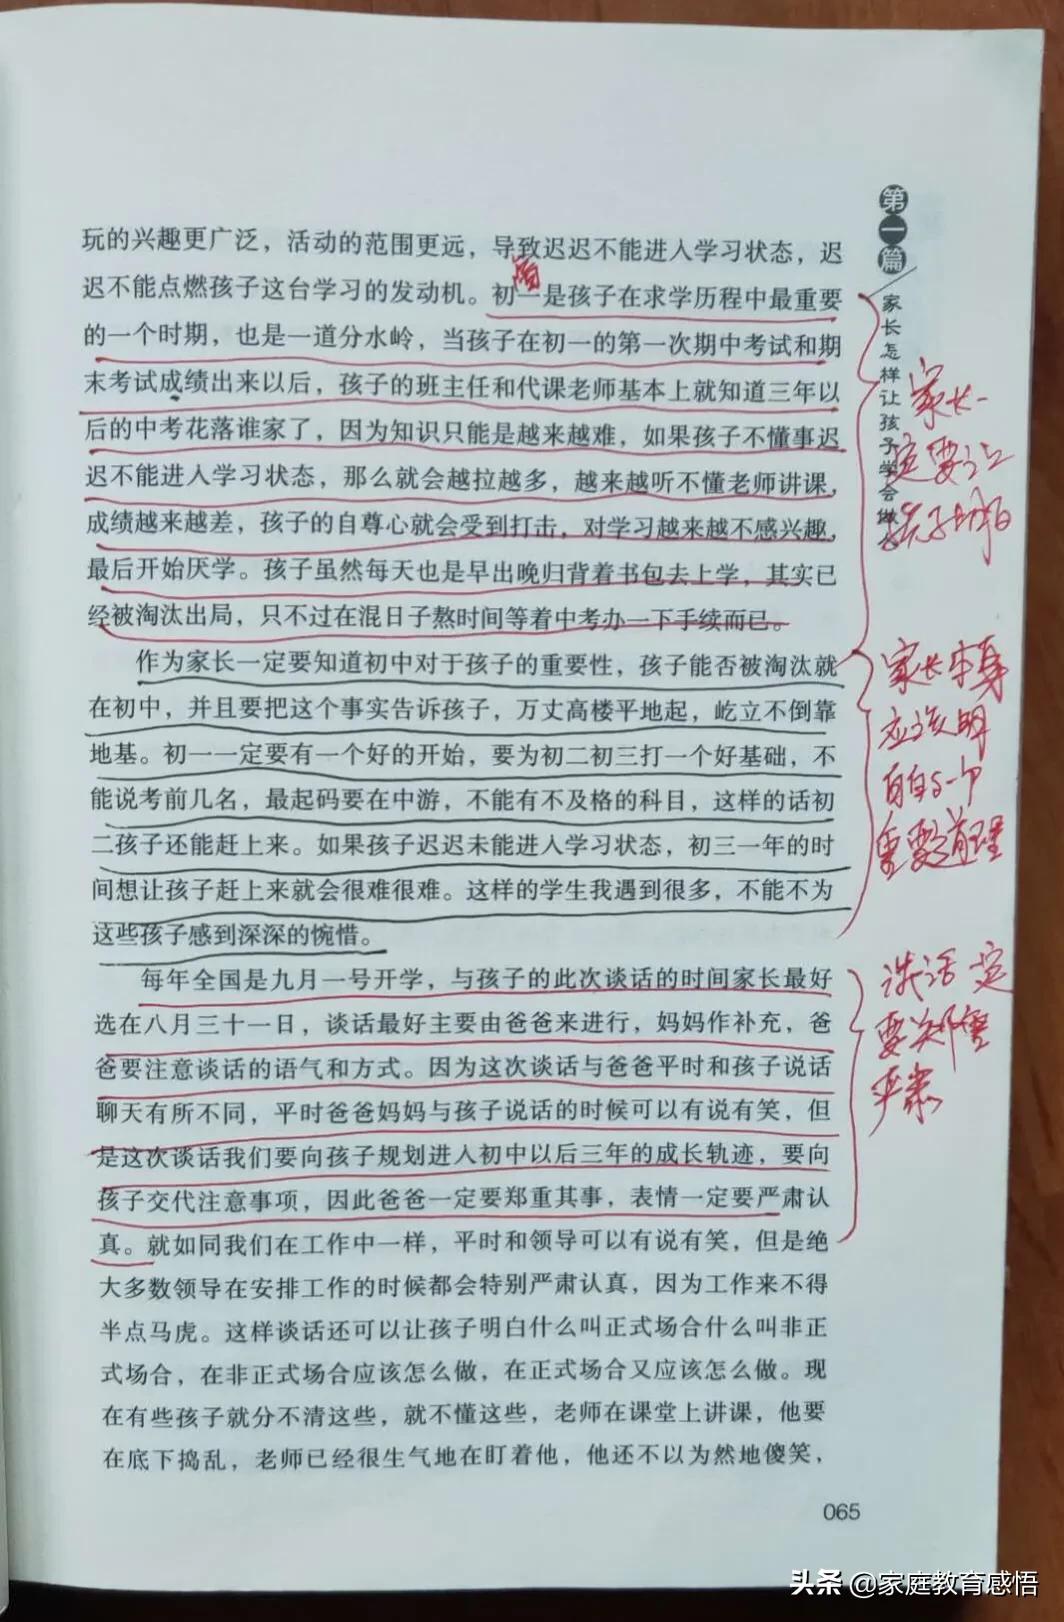 第一篇
家长怎样让孩子学会做人
玩的兴趣更广泛，活动的范围更远，导致迟迟不能进入学习状态，迟
迟不能点燃孩子这台学习的发动机。初一是孩子在求学历程中最重要
的一个时期，也是一道分水岭，当孩子在初一的第一次期中考试和期
末考试成绩出来以后，孩子的班主任和代课老师基本上就知道三年以
后的中考花落谁家了，因为知识只能是越来越难，如果孩子不懂事迟
迟不能进入学习状态，那么就会越拉越多，越来越听不懂老师讲课，
成绩越来越差，孩子的自尊心就会受到打击，对学习越来越不感兴趣，
最后开始厌学。孩子虽然每天也是早出晚归背着书包去上学，其实已
经被淘汰出局，只不过在混日子熬时间等着中考办一下手续而已。
作为家长一定要知道初中对于孩子的重要性，孩子能否被淘汰就
在初中，并且要把这个事实告诉孩子，万丈高楼平地起，屹立不倒靠
地基。初一一定要有一个好的开始，要为初二初三打一个好基础，不
能说考前几名，最起码要在中游，不能有不及格的科目，这样的话初
二孩子还能赶上来。如果孩子迟迟未能进入学习状态，初三一年的时
间想让孩子赶上来就会很难很难。这样的学生我遇到很多，不能不为
这些孩子感到深深的惋惜。
每年全国是九月一号开学，与孩子的此次谈话的时间家长最好
选在八月三十一日，谈话最好主要由爸爸来进行，妈妈作补充，爸
爸要注意谈话的语气和方式。因为这次谈话与爸爸平时和孩子说话
聊天有所不同，平时爸爸妈妈与孩子说话的时候可以有说有笑，但
是这次谈话我们要向孩子规划进入初中以后三年的成长轨迹，要向
孩子交代注意事项，因此爸爸一定要郑重其事，表情一定要严肃认
真。就如同我们在工作中一样，平时和领导可以有说有笑，但是绝
大多数领导在安排工作的时候都会特别严肃认真，因为工作来不得
半点马虎。这样谈话还可以让孩子明白什么叫正式场合什么叫非正
式场合，在非正式场合应该怎么做，在正式场合又应该怎么做。现
在有些孩子就分不清这些，就不懂这些，老师在课堂上讲课，他要
在底下捣乱，老师已经很生气地在盯着他，他还不以为然地傻笑，
家长一
定要让
孩子明白
家长本身
应该明
白
重要道理
谈话一定
要郑重
严肃
065
头条 @家庭教育感悟